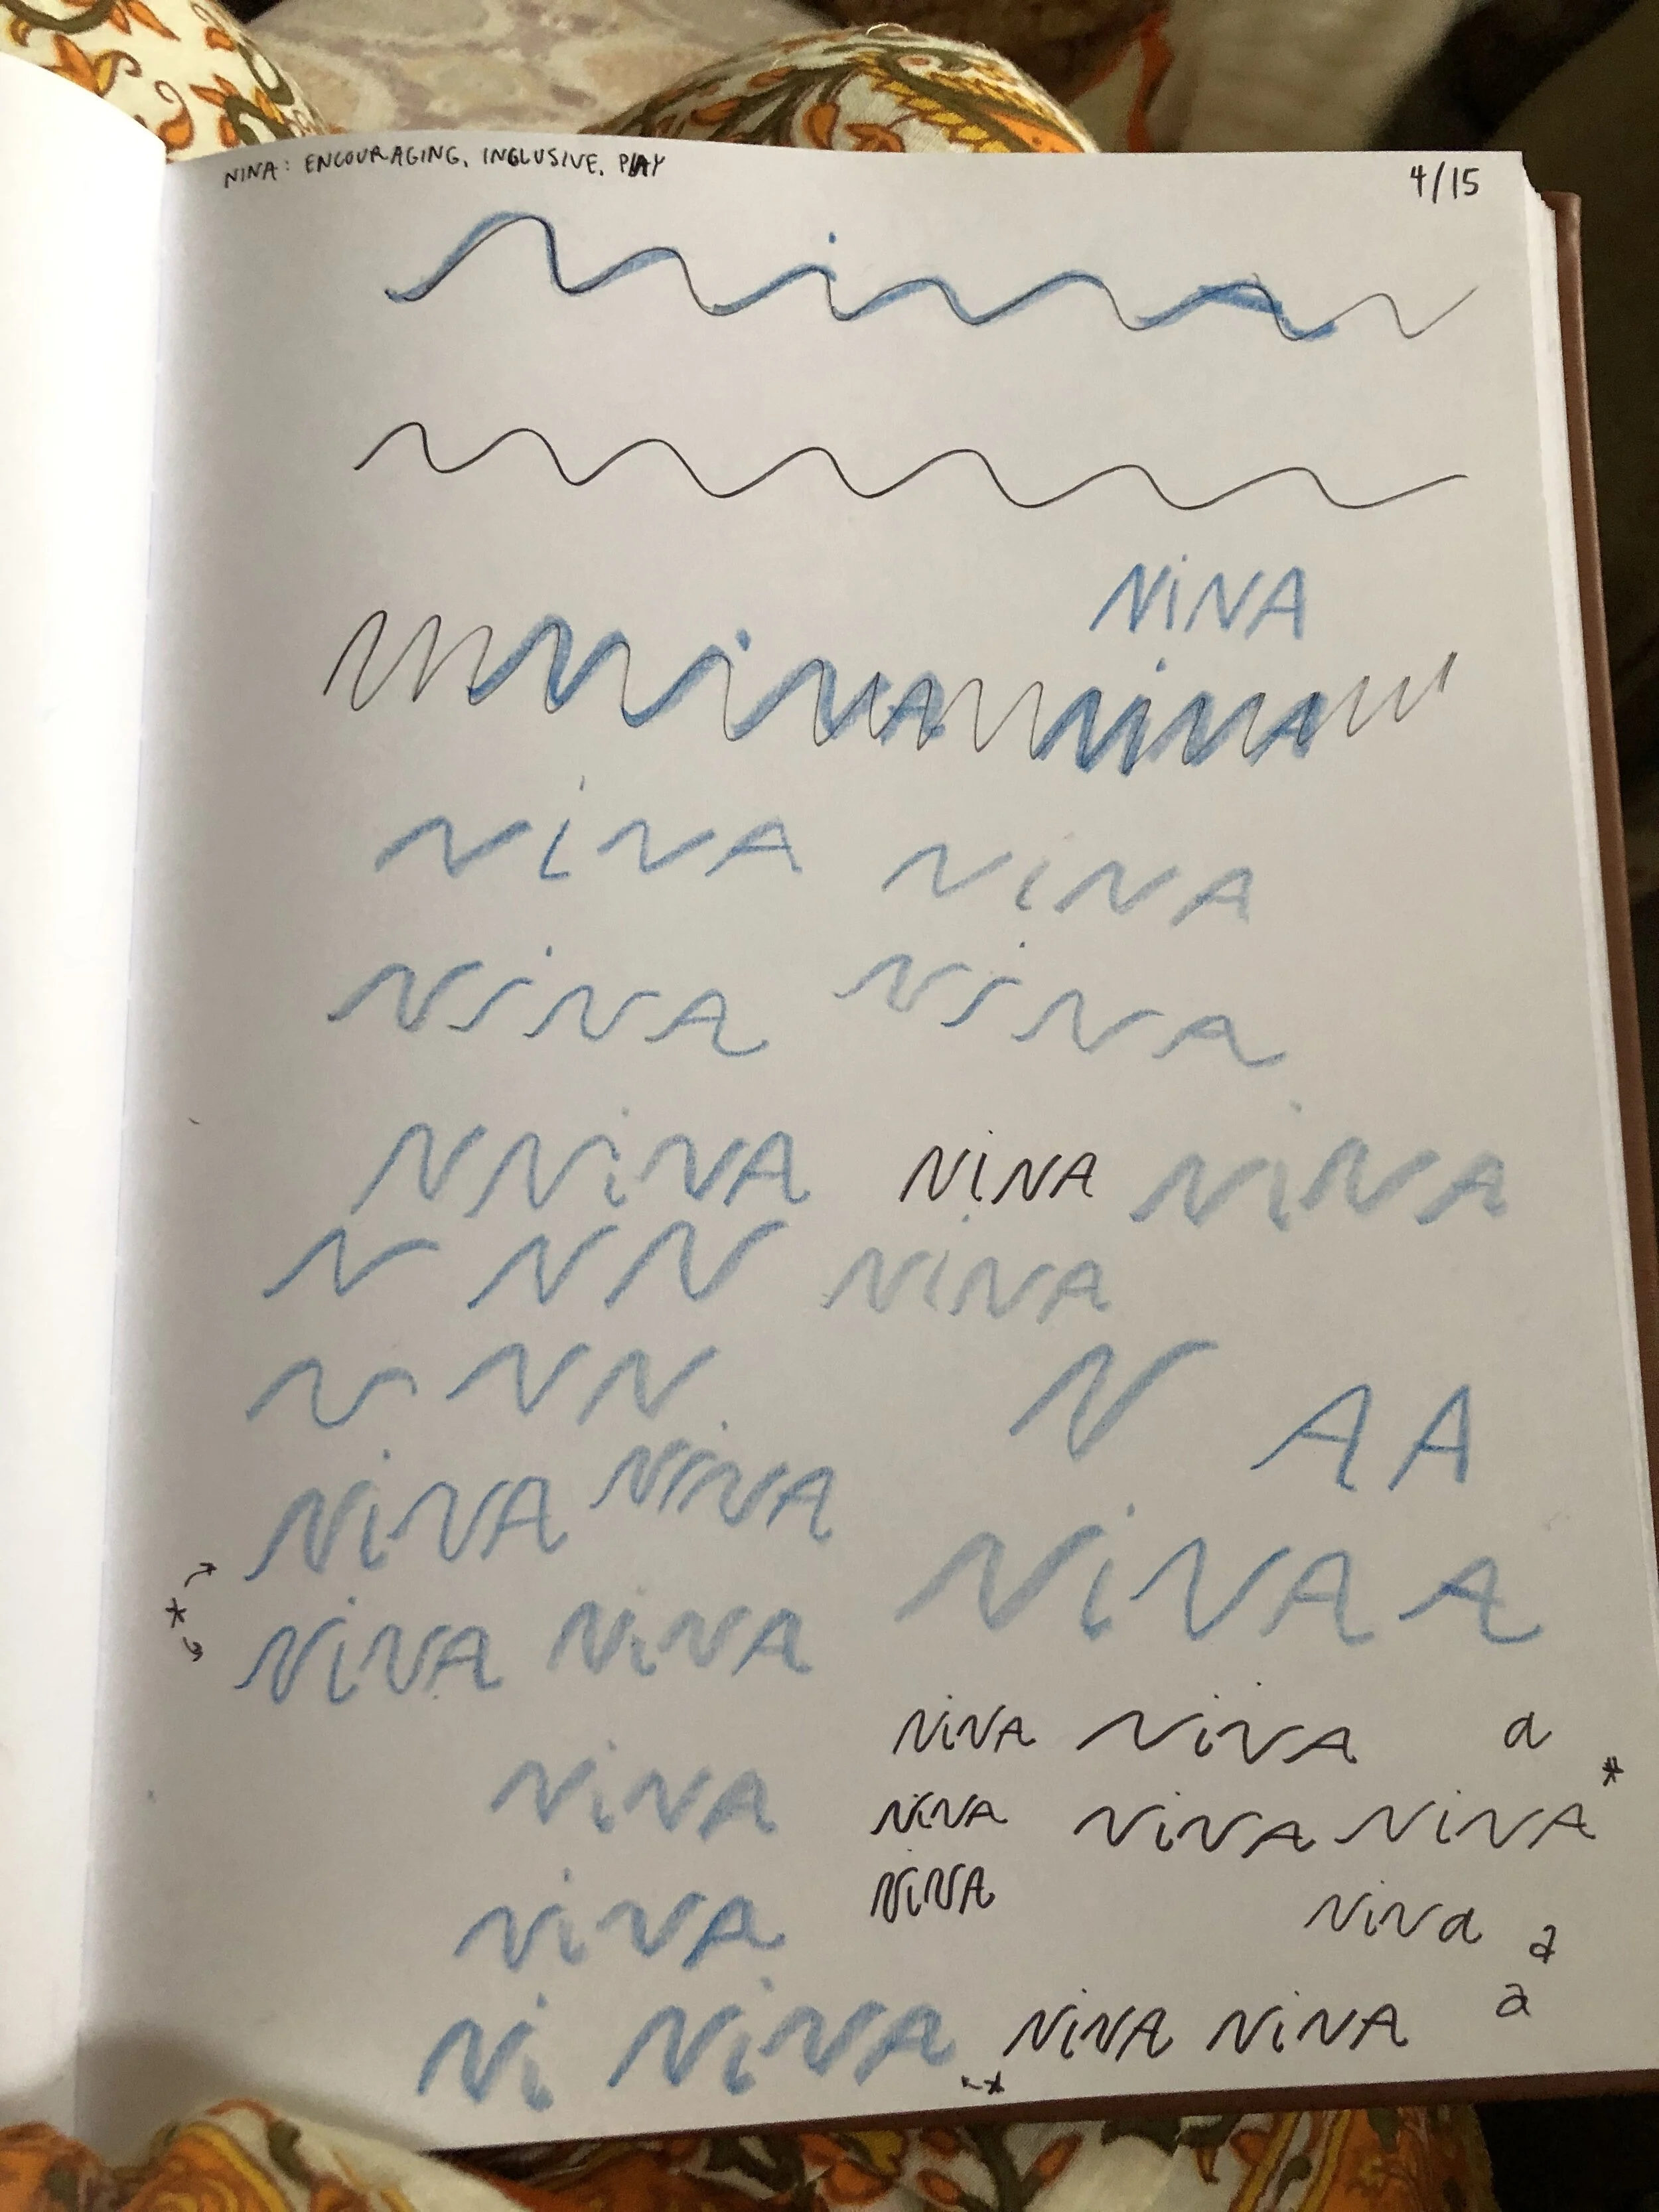 NINA: ENCOURAGING, INCLUSIVE, PLAY
4/15
NiNA
NiNA
NiNA NiNA
NiNA NiNA
NiNA NiNA
N NiNA NiNA NiNA
N N N NiNA
N N N
N A A
NiNA NiNA
NiNA A
NiNA NiNA
NiNA NiNA a
NiNA
NiNA NiNA NiNA *
NiNA
NiNA
NiNa a
a
Ni NiNA NiNA NiNA